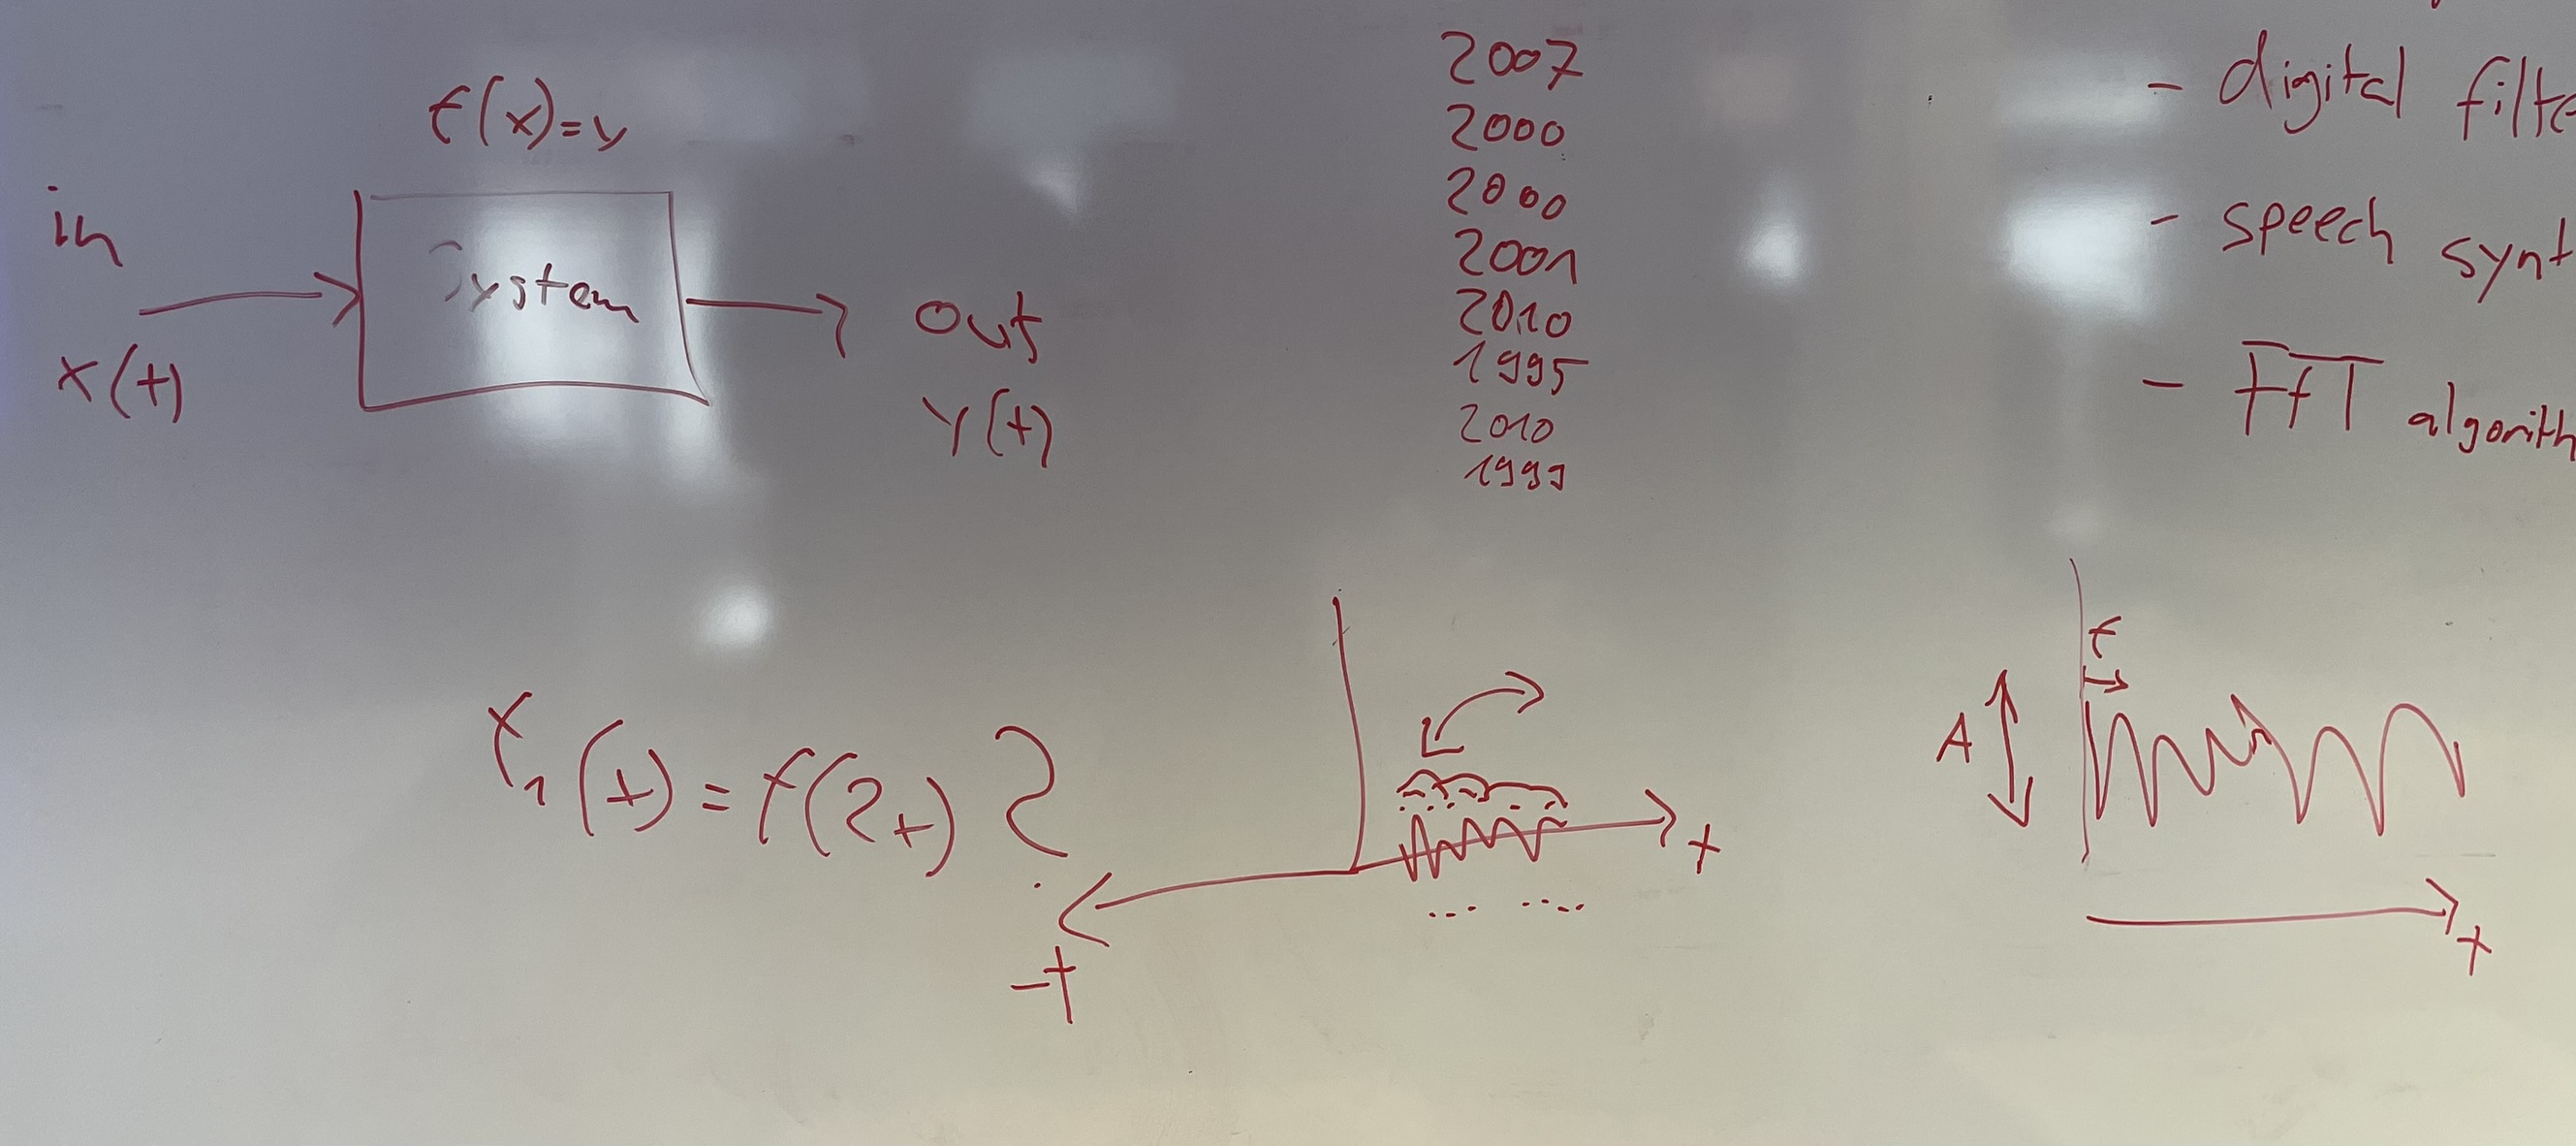 f(x)=y
in
x(t)
System
out
y(t)
2007
2000
2000
2001
2010
1995
2010
1999
- digital filte
- speech synt
- FFT algorith
x₁(t) = f(2t) ?
t
-t
A
f
t